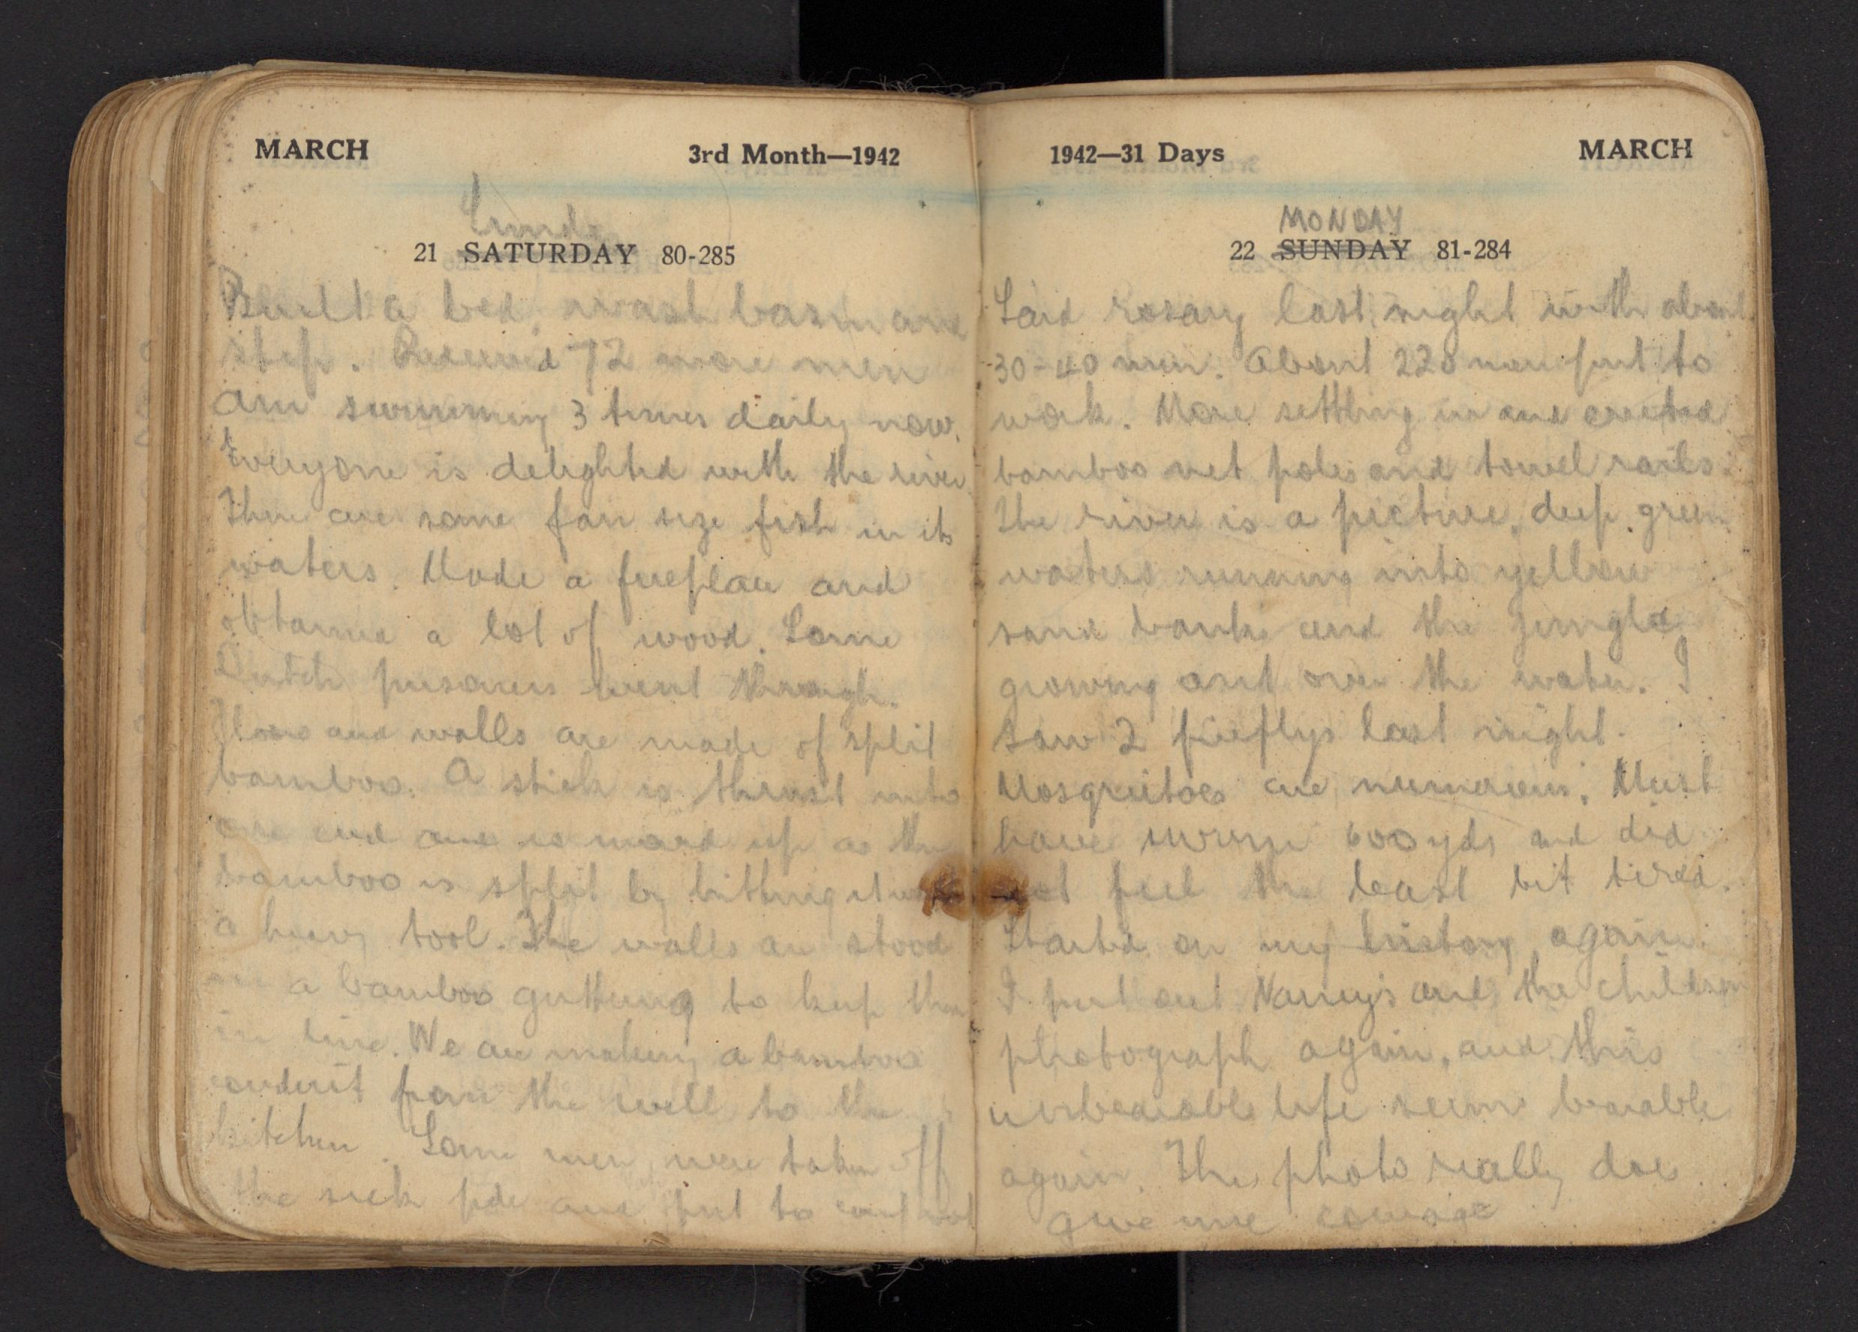 MARCH 3rd Month—1942
Sunday
21 SATURDAY 80-285
Built a bed, wash basin and
step. Received 72 more men
Am swimming 3 times daily now.
Everyone is delighted with the river
There are some fair size fish in its
waters. Made a fireplace and
obtained a lot of wood. Some
Dutch prisoners went through.
Floors and walls are made of split
bamboo. A stick is thrust into
one end and is moved up as the
bamboo is split by hitting it with
a heavy tool. The walls are stood
in a bamboo guttering to keep them
in line. We are making a bamboo
conduit from the well to the
kitchen. Some men were taken off
the sick pde and put to
1942—31 Days MARCH
MONDAY
22 SUNDAY 81-284
Said rosary last night with about
30-40 men. About 220 men put to
work. More settling in and erected
bamboo net poles and towel rails.
The river is a picture, deep, green
waters running into yellow
sand banks and the jungle
growing out over the water. I
saw 2 fireflys last night.
Mosquitoes are numerous. Must
have swum 600 yds and did
not feel the least bit tired.
Started on my history again.
I put out Nancy's and the children
photograph again, and this
unbearable life seems bearable
again. The photo really does
give me courage